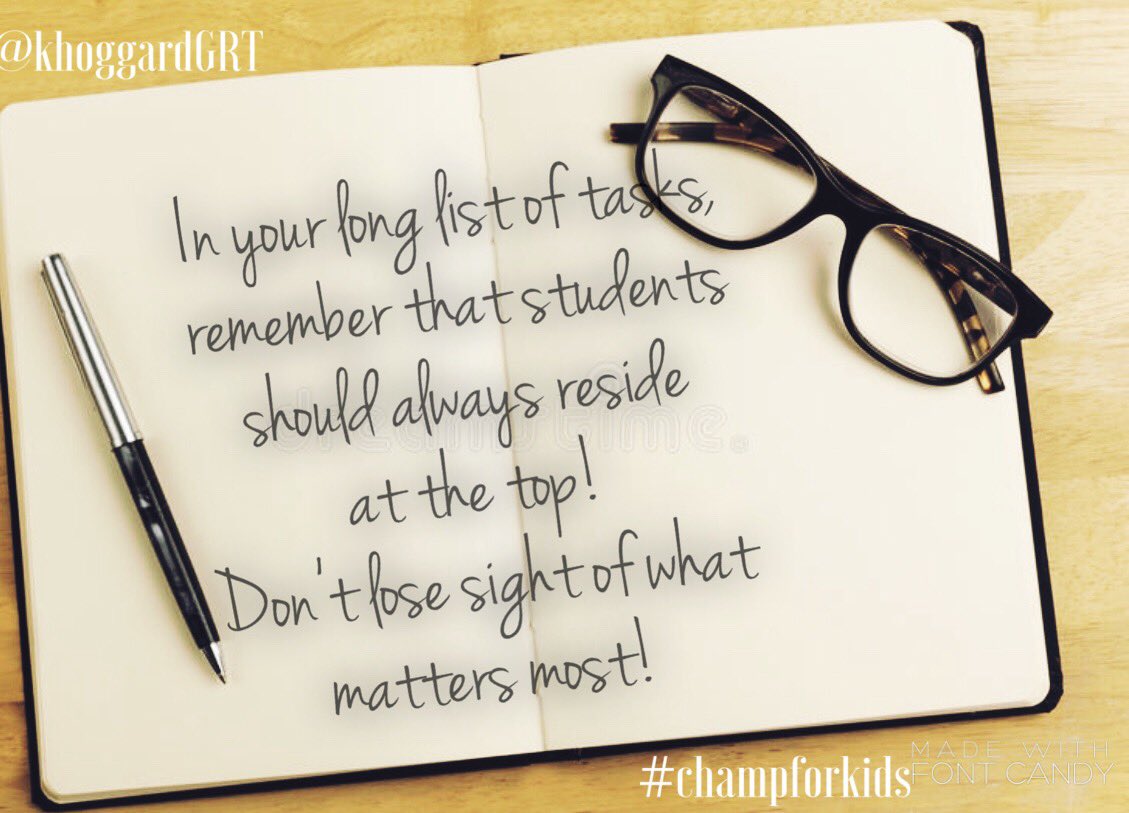 @khoggardGRT
In your long list of tasks,
remember that students
should always reside
at the top!
Don't lose sight of what
matters most!
#champforkids
MADE WITH
FONT CANDY